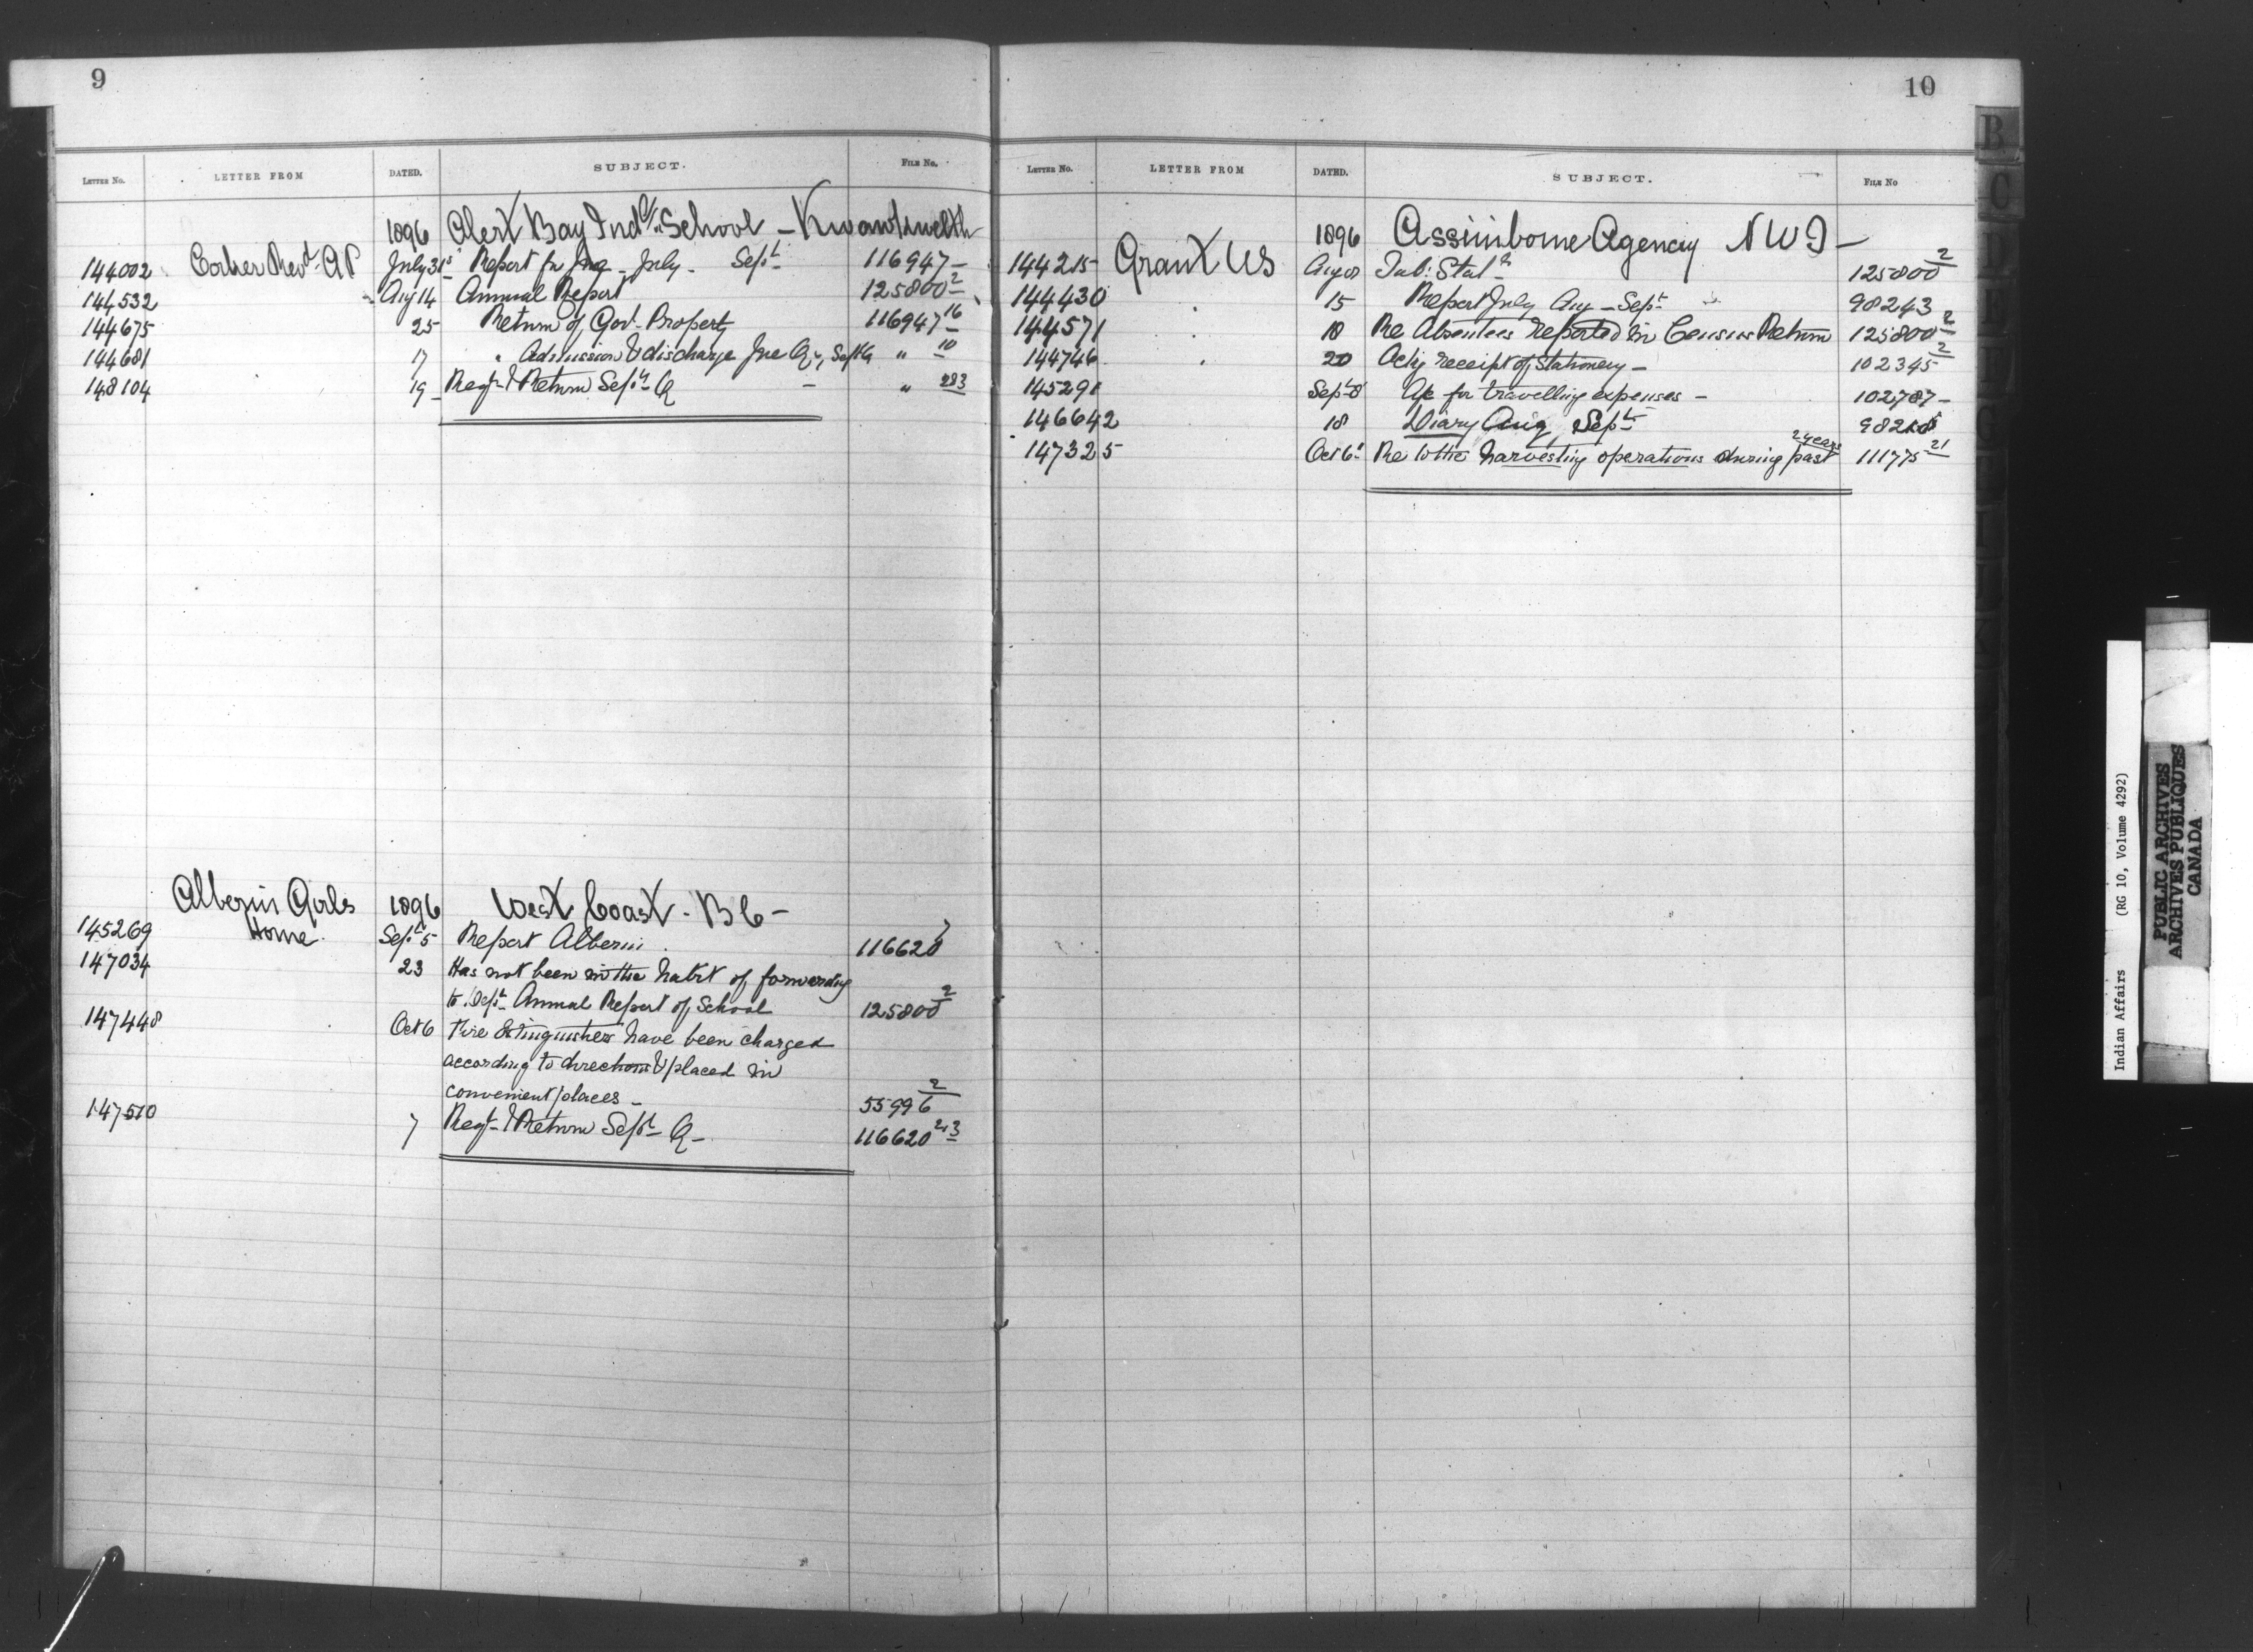 9
LETTER No. LETTER FROM DATED. SUBJECT. FILE No.
1896 Alert Bay Ind. School - Kwawkwelth
144002 Corker Revd. AP July 31st Report for June - July - Sept. 116947 -
144532 Aug 14 Annual Report 125800 2
144675 25 Return of Govt. Property 116947 16
144681 17 " Admission & discharge Jne Qr, Sept Q " 10
148104 19 - Regr. & Return Sept. Q - " 283
Alberni Girls Home 1896 West Coast - B C -
145269 Sept 5 Report Alberni 116620 7
147034 23 Has not been in the habit of forwarding
to Dept. Annual Report of School 125800 2
147448 Oct 6 Fire Extinguishers have been charged
according to directions & placed in
convenient places - 55996 2
147510 7 Regr. & Return Sept. Q - 116620 243
10
LETTER No. LETTER FROM DATED. SUBJECT. FILE No
1896 Assiniboine Agency N W T -
144215 Grant WS Aug 08 Tab: Stat. 125800 2
144430 15 Report July Aug - Sept. 98243
144571 18 Re Absentees reported in Census Return 125800 2
144746 20 Ackg receipt of Stationery - 102345 2
145291 Sept 8 A/c for travelling expenses - 102787 -
146642 18 Diary Aug Sept.
147325 Oct 6 Re to the harvesting operations during past 2 years 111775 21
B
C
Indian Affairs (RG 10, Volume 4292)
PUBLIC ARCHIVES
ARCHIVES PUBLIQUES
CANADA